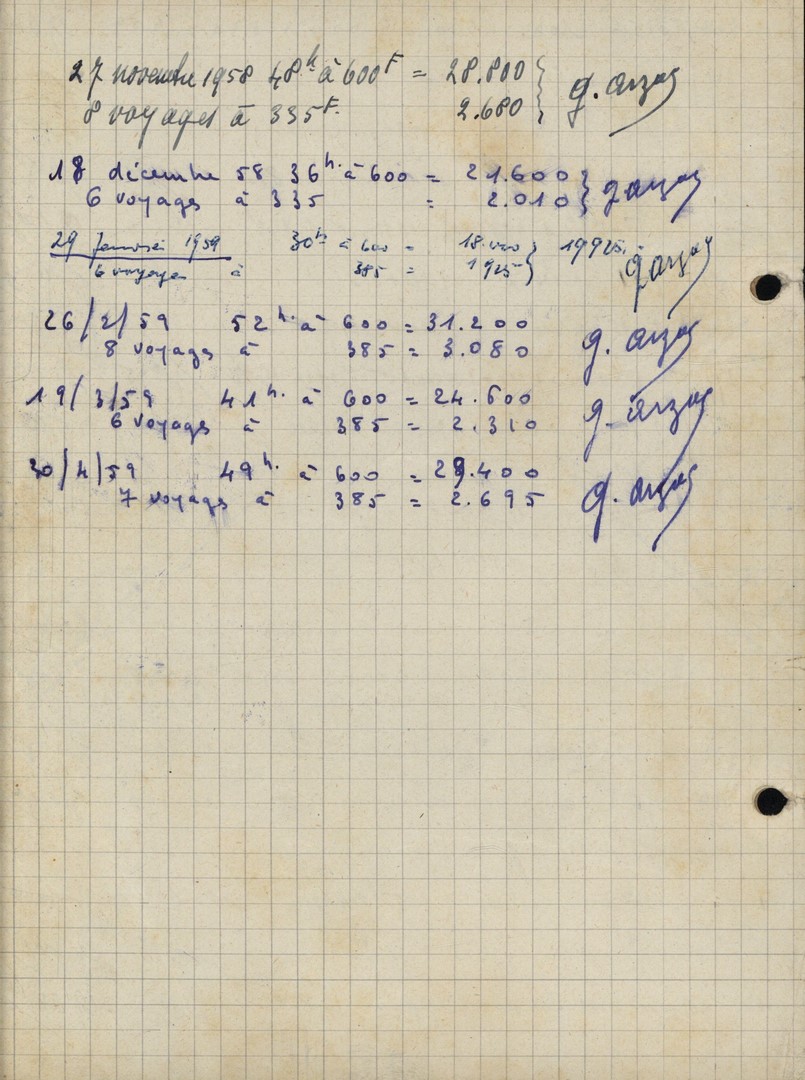 27 novembre 1958 48h à 600F = 28.800 } g. arzas
8 voyages à 335F. 2.680
18 décembre 58 36h. à 600 = 21.600 } g arzas
6 voyages à 335 = 2.010
29 Janvier 1959 30h à 600 = 18.000 } 19925. g arzas
6 voyages à 385 = 1925
26/2/59 52h. à 600 = 31.200 g. arzas
8 voyages à 385 = 3.080
19/3/59 41h. à 600 = 24.600 g. arzas
6 voyages à 385 = 2.310
30/4/59 49h. à 600 = 29.400 g. arzas
7 voyages à 385 = 2.695